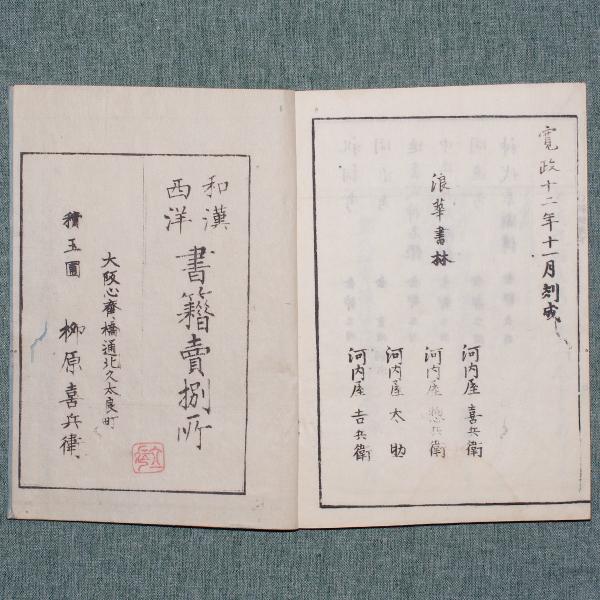 寛政十二年十一月刻成
浪華書林
河内屋 喜兵衛
河内屋 惣兵衛
河内屋 太助
河内屋 吉兵衛
和漢
西洋
書籍賣捌所
大阪心斎橋通北久太良町
積玉圃 柳原喜兵衛